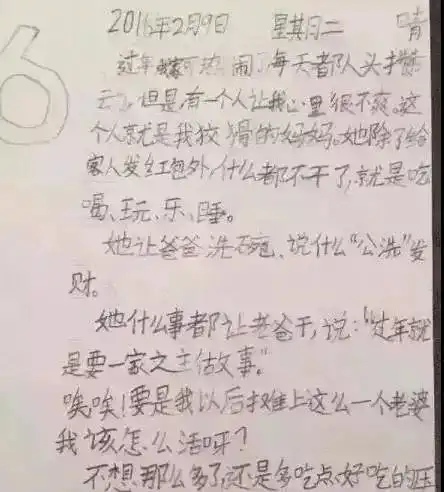 6
2016年2月9日 星期二 晴
过年家可热闹了每天都人头攒
云力,但是有一个人让我心里很不爽。这
个人就是我狡猾的妈妈。她除了给
客人发红包外,什么都不干了,就是吃
喝、玩、乐、睡。
她让爸爸洗碗、说什么“公洗”发
财。
她什么事都让老爸干,说:“过年就
是要一家之主做事。”
唉唉!要是我以后摊上这么一个老婆
我该怎么活呀?
不想那么多了,还是多吃点好吃的压